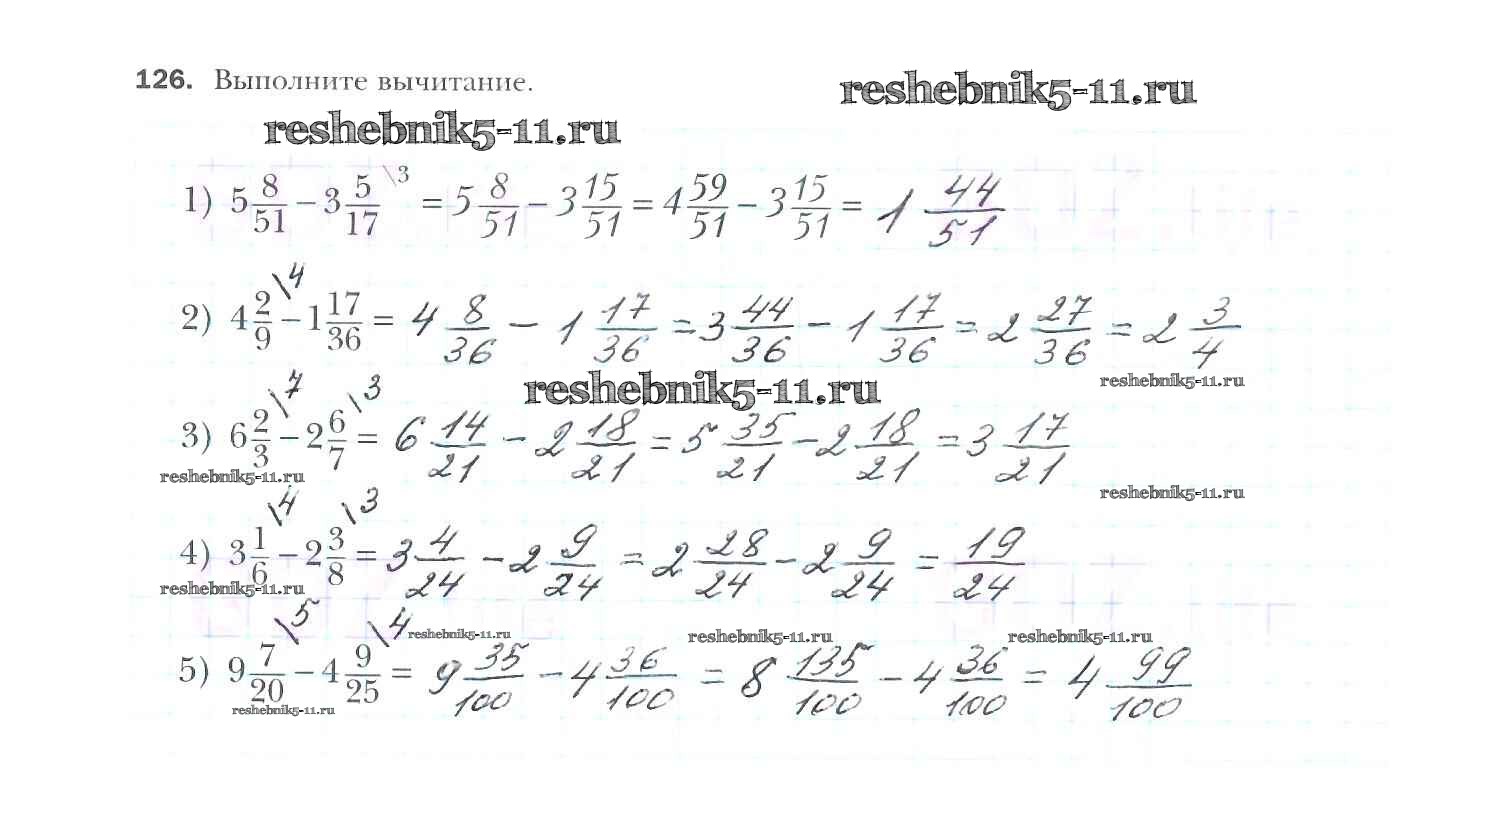 126. Выполните вычитание.
reshebnik5-11.ru
reshebnik5-11.ru
1) 5 8/51 − 3 5/17 \3 = 5 8/51 − 3 15/51 = 4 59/51 − 3 15/51 = 1 44/51
2) 4 2/9 \4 − 1 17/36 = 4 8/36 − 1 17/36 = 3 44/36 − 1 17/36 = 2 27/36 = 2 3/4
reshebnik5-11.ru
reshebnik5-11.ru
3) 6 2/3 \7 − 2 6/7 \3 = 6 14/21 − 2 18/21 = 5 35/21 − 2 18/21 = 3 17/21
reshebnik5-11.ru
reshebnik5-11.ru
4) 3 1/6 \4 − 2 3/8 \3 = 3 4/24 − 2 9/24 = 2 28/24 − 2 9/24 = 19/24
reshebnik5-11.ru
reshebnik5-11.ru
reshebnik5-11.ru
reshebnik5-11.ru
5) 9 7/20 \5 − 4 9/25 \4 = 9 35/100 − 4 36/100 = 8 135/100 − 4 36/100 = 4 99/100
reshebnik5-11.ru